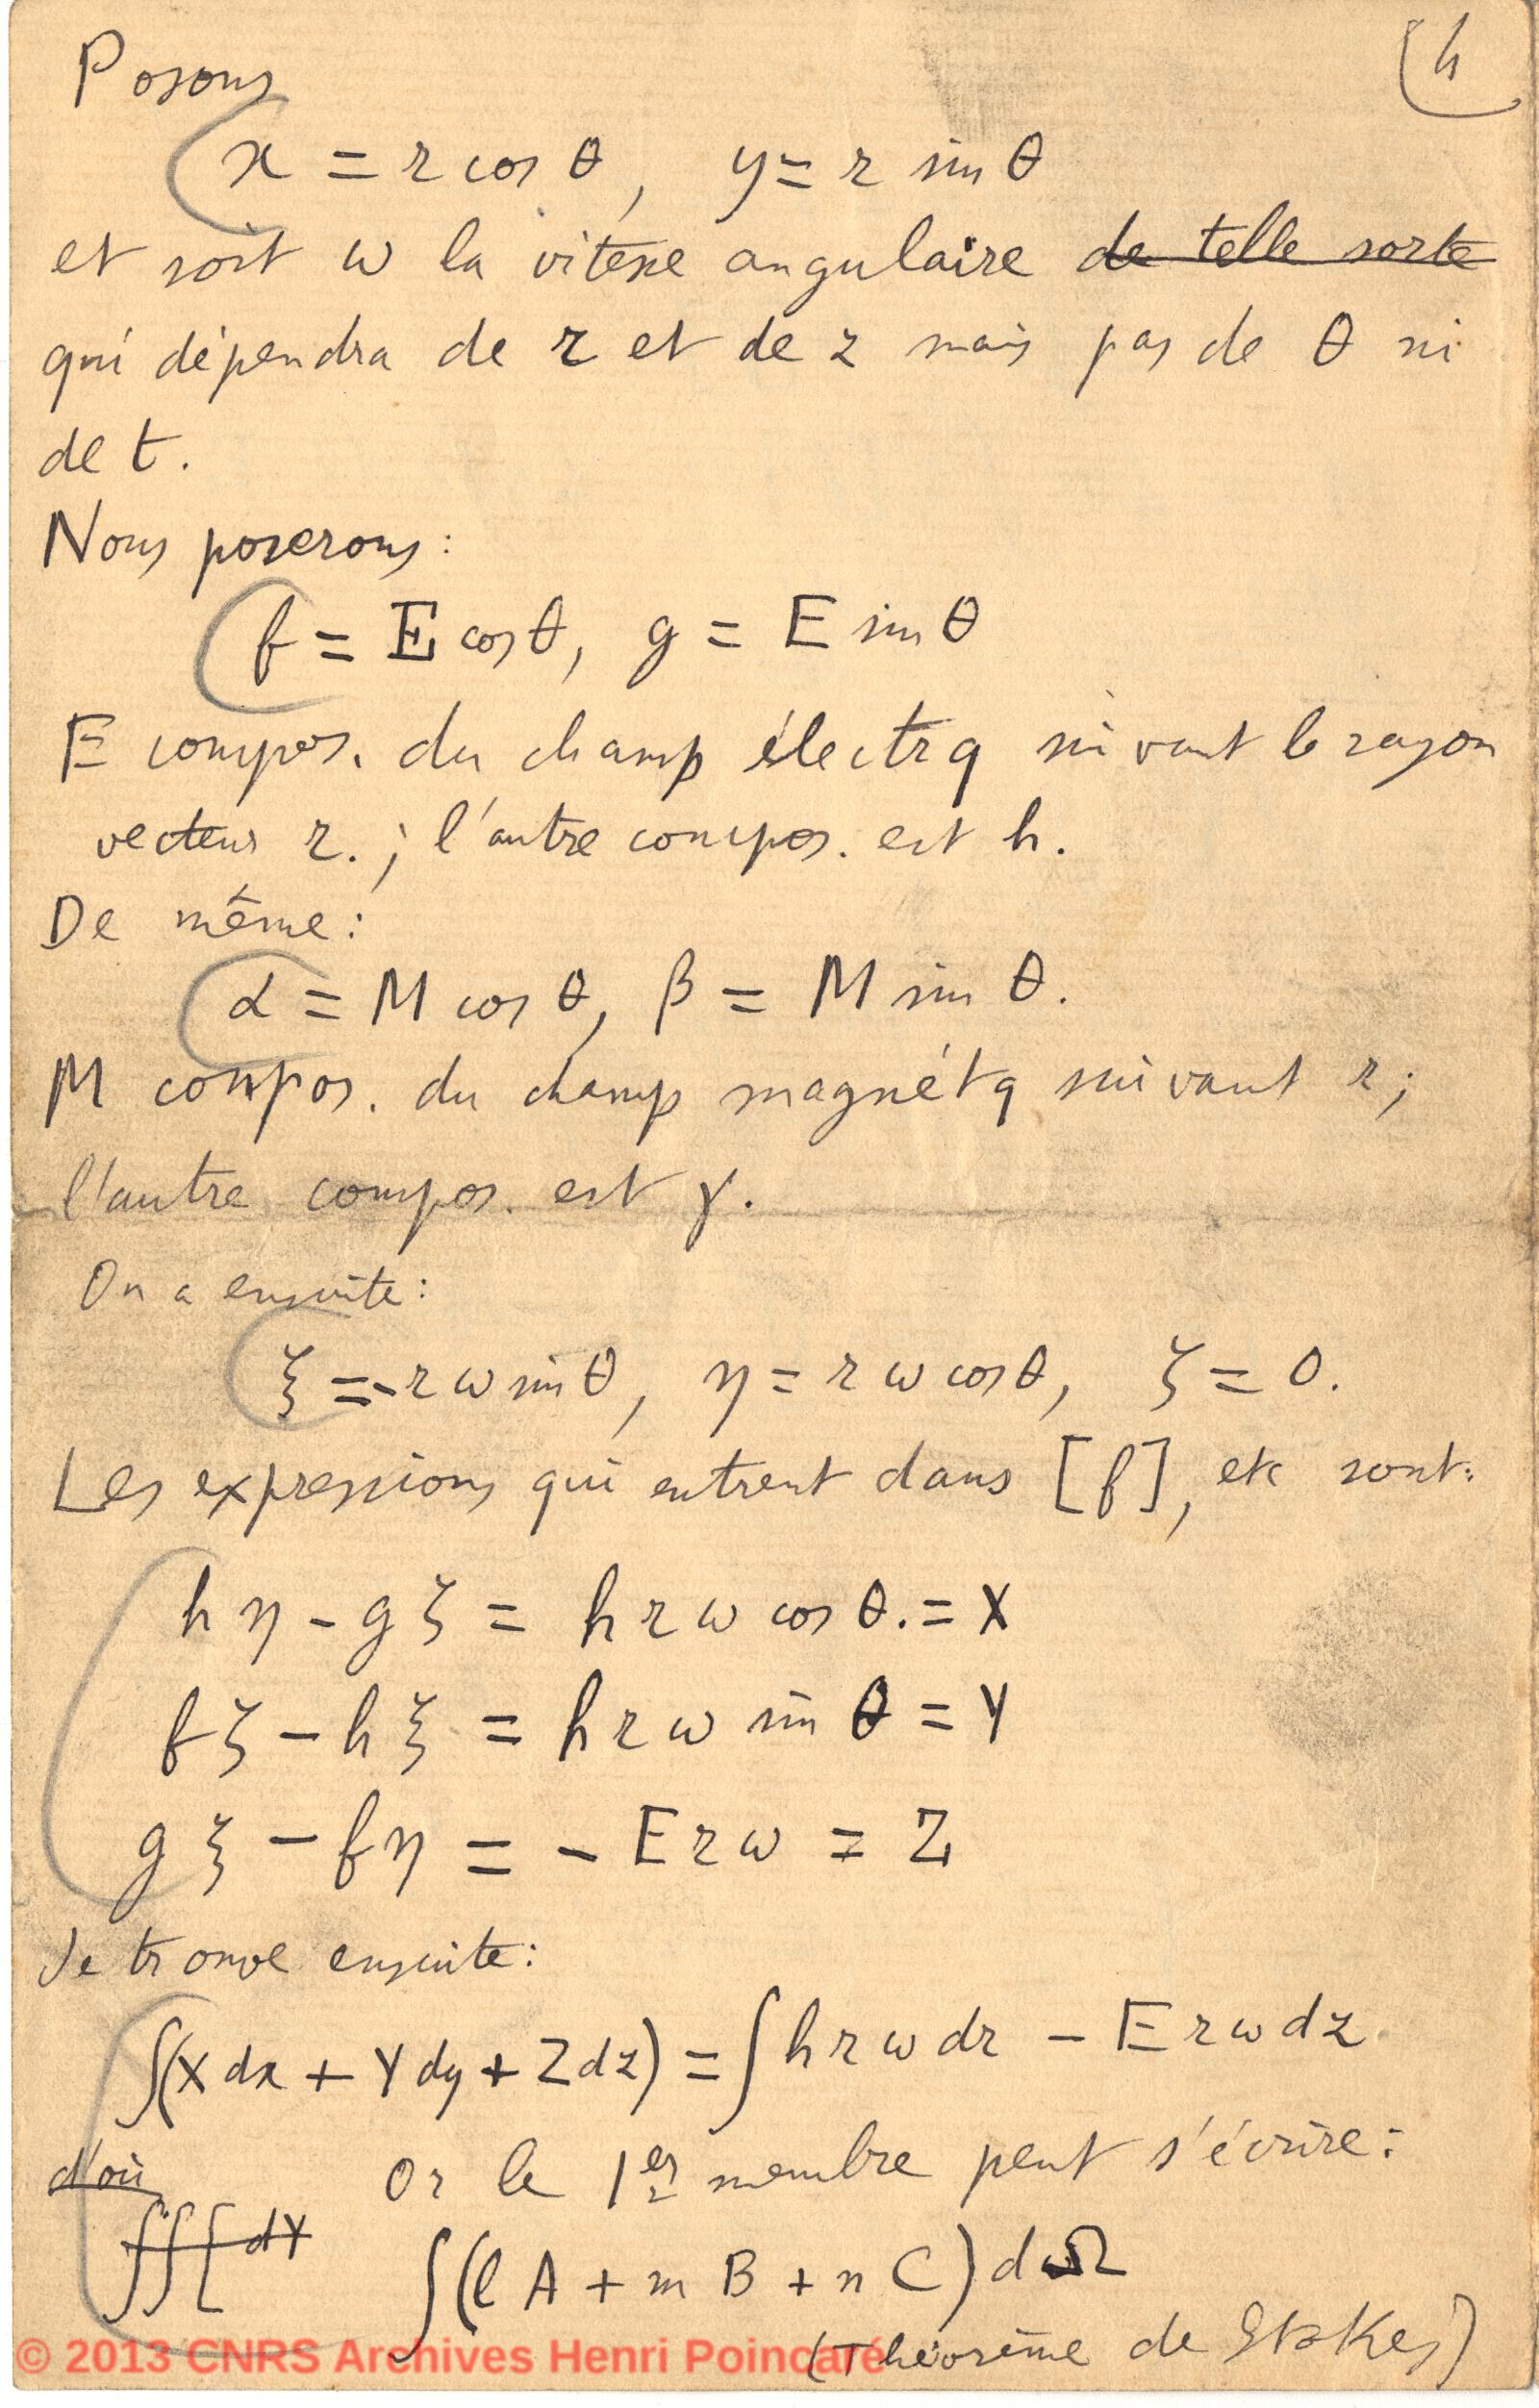 4
Posons
x = r cos θ, y = r sin θ
et soit ω la vitesse angulaire de telle sorte
qui dépendra de r et de z mais pas de θ ni
de t.
Nous poserons:
f = E cos θ, g = E sin θ
E compos. du champ électrq suivant le rayon
vecteur r. ; l'autre compos. est h.
De même:
α = M cos θ, β = M sin θ.
M compos. du champ magnétq suivant r;
l'autre compos. est γ.
On a ensuite:
ξ = -r ω sin θ, η = r ω cos θ, ζ = 0.
Les expressions qui entrent dans [f], etc sont:
h η - g ζ = h r ω cos θ. = X
f ζ - h ξ = h r ω sin θ = Y
g ξ - f η = - E r ω = Z
Je trouve ensuite:
∫(X dx + Y dy + Z dz) = ∫ h r ω dr - E r ω dz
d'où Or le 1er membre peut s'écrire:
∫∫[ dY ∫(l A + m B + n C) dΩ
(Théorème de Stokes)
© 2013 CNRS Archives Henri Poincaré